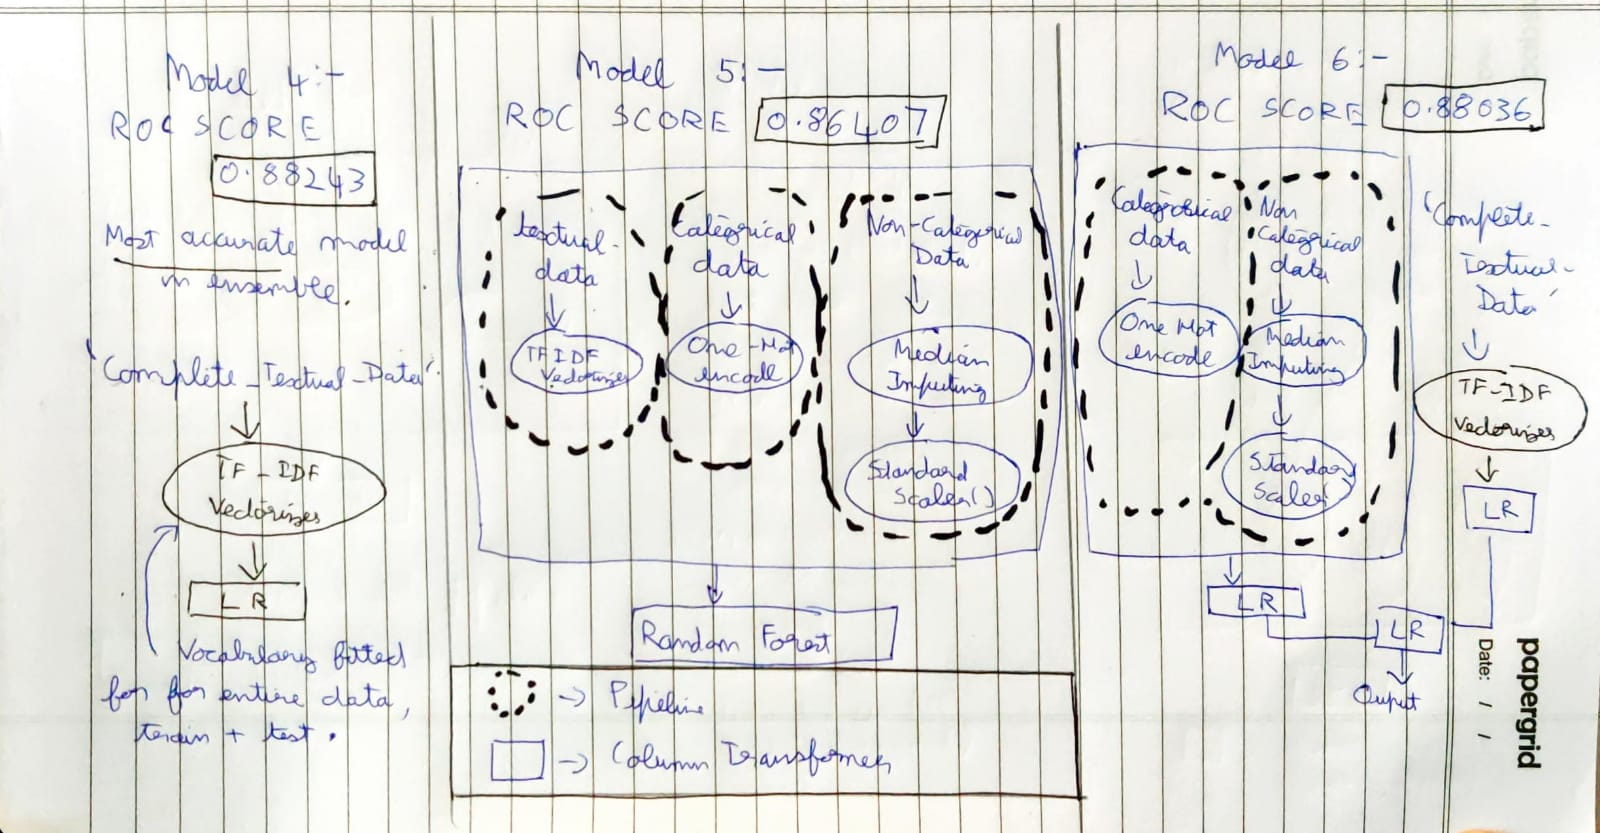 Model 4:-
ROC SCORE
0.88243
Most accurate model
in ensemble.
'Complete_Textual_Data'
TF-IDF
Vectorizer
LR
Vocabulary fitted
for for entire data,
train + test.
Model 5:-
ROC SCORE 0.86407
textual-
data
TFIDF
Vectorizer
Categorical
data
One-Hot
encode
Non-Categorical
Data
Median
Imputing
Standard
Scaler()
Random Forest
-> Pipeline
-> Column Transformer
Model 6:-
ROC SCORE 0.88036
Categorical
data
One Hot
encode
Non
Categorical
data
Median
Imputing
Standard
Scaler()
LR
'Complete-
Textual-
Data'
TF-IDF
Vectorizer
LR
LR
Ouput
Date: / /
papergrid